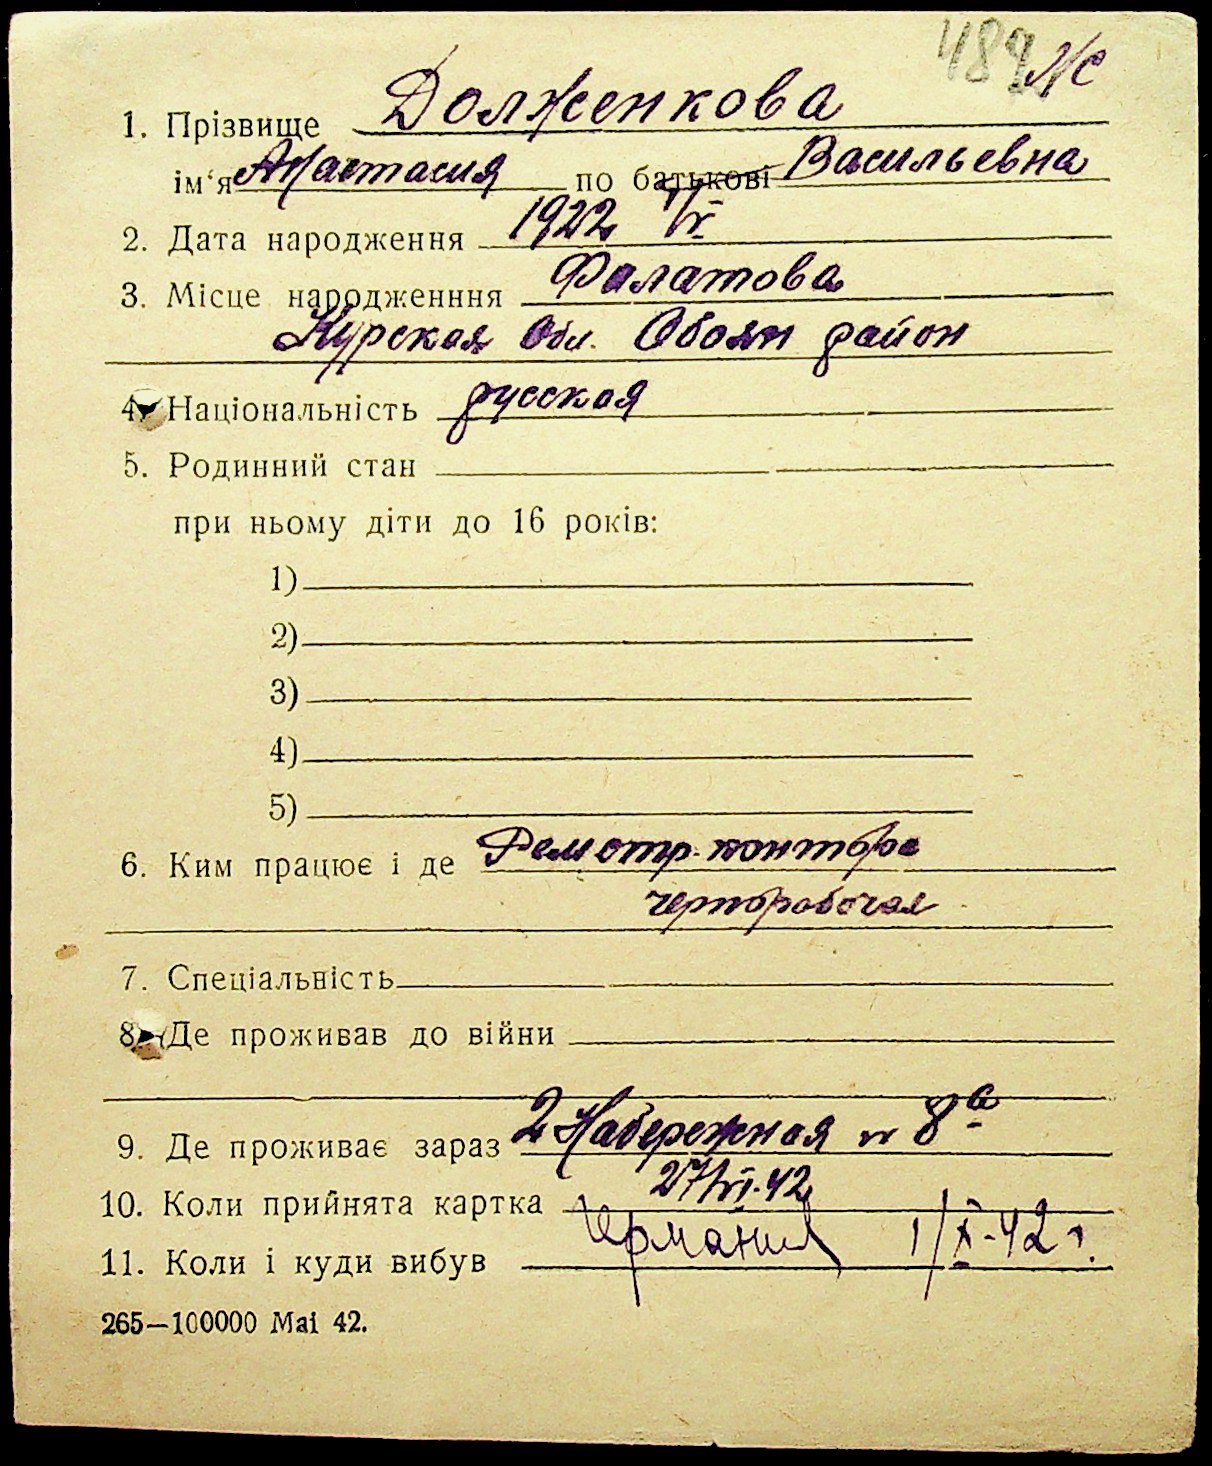 489 ж
1. Прізвище Долженкова
ім'я Анастасия по батькові Васильевна
2. Дата народження 1922
3. Місце народженння Филатова
Курская Обл. Обоян район
4. Національність русская
5. Родинний стан
при ньому діти до 16 років:
1)
2)
3)
4)
5)
6. Ким працює і де контора
черноробочая
7. Спеціальність
8. Де проживав до війни
9. Де проживає зараз 2 Набережная № 8а
10. Коли прийнята картка 27/VI-42
11. Коли і куди вибув Германия 1/X-42 г.
265—100000 Mai 42.